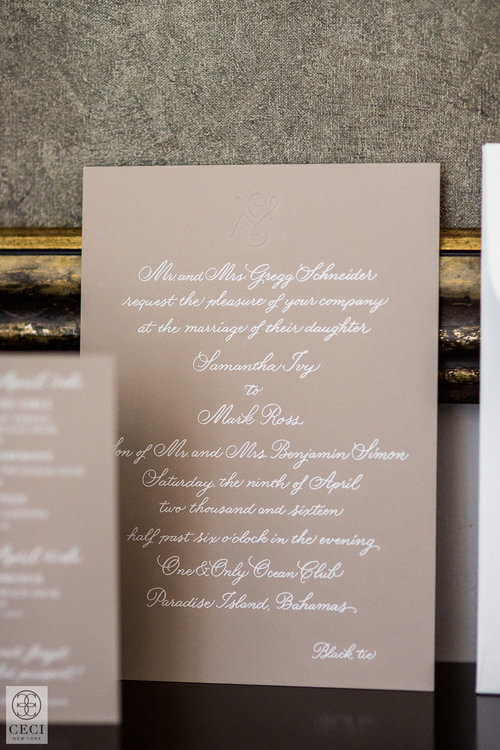 Mr. and Mrs. Gregg Schneider
request the pleasure of your company
at the marriage of their daughter
Samantha Ivy
to
Mark Ross
son of Mr. and Mrs. Benjamin Simon
Saturday, the ninth of April
two thousand and sixteen
half past six o'clock in the evening
One & Only Ocean Club
Paradise Island, Bahamas
Black tie
CECI
NEW YORK